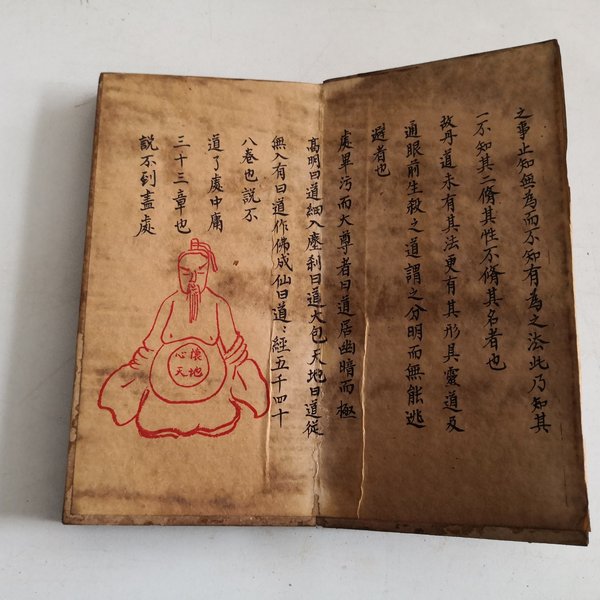 之事止知無為而不知有為之法此乃知其
一不知其二脩其性不脩其名者也
故丹道未有其法更有其形具靈道及
通眼前生殺之道謂之分明而無能逃
避者也
處卑污而大尊者曰道居幽暗而極
高明曰道細入塵刹曰道大包天地曰道從
無入有曰道作佛成仙曰道：經五千四十
八卷也說不
道了處中庸
三十三章也
說不到盡處
心懷
天地